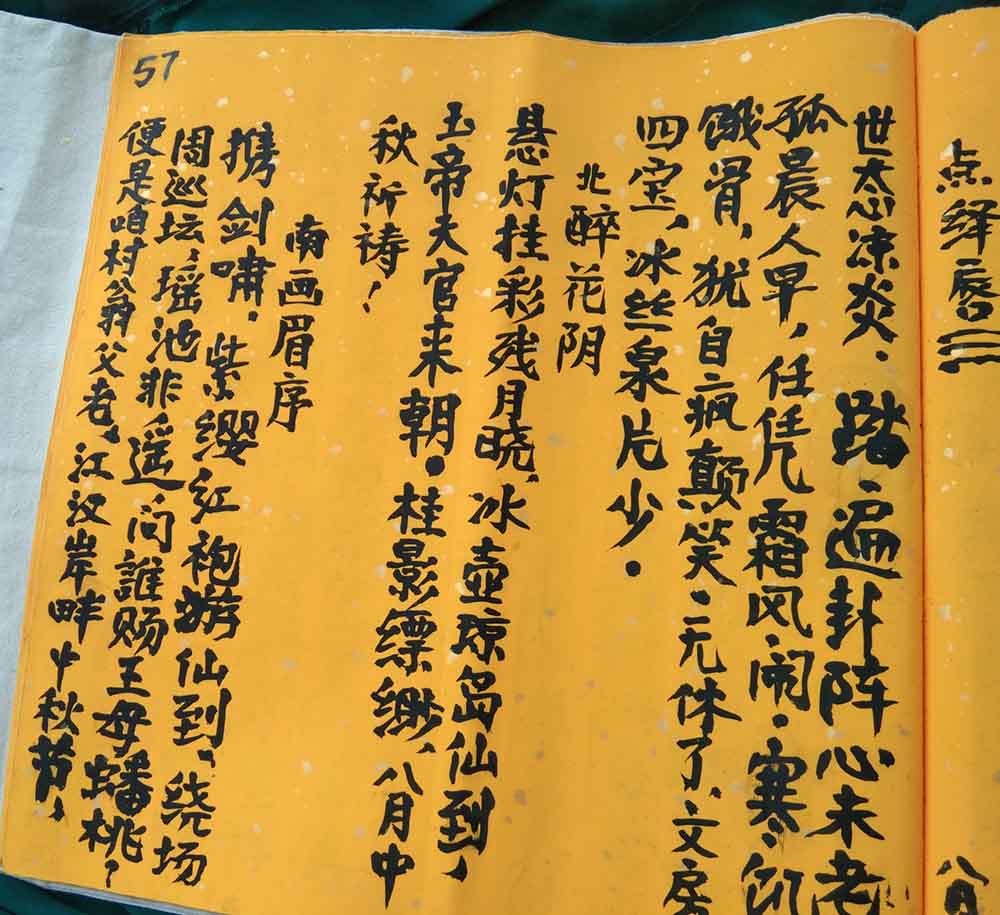 点绛唇(二)
八月
世态凉炎.踏遍卦阵心未老
孤晨人早,任凭霜风.闹.寒.饥
饿骨,犹自疯癫笑.无休了、文房
四宝,冰丝泉片少.
北醉花阴
悬灯挂彩残月晓,冰壶琼岛仙到,
玉帝天官来朝.桂影缥缈、八月中
秋祈祷!
南画眉序
携剑啸.紫缨红袍游仙到、绕场
周巡坛,瑶池非遥.问誰赐王母蟠桃?
便是咱村翁父老、江汉岸畔中秋节,
57